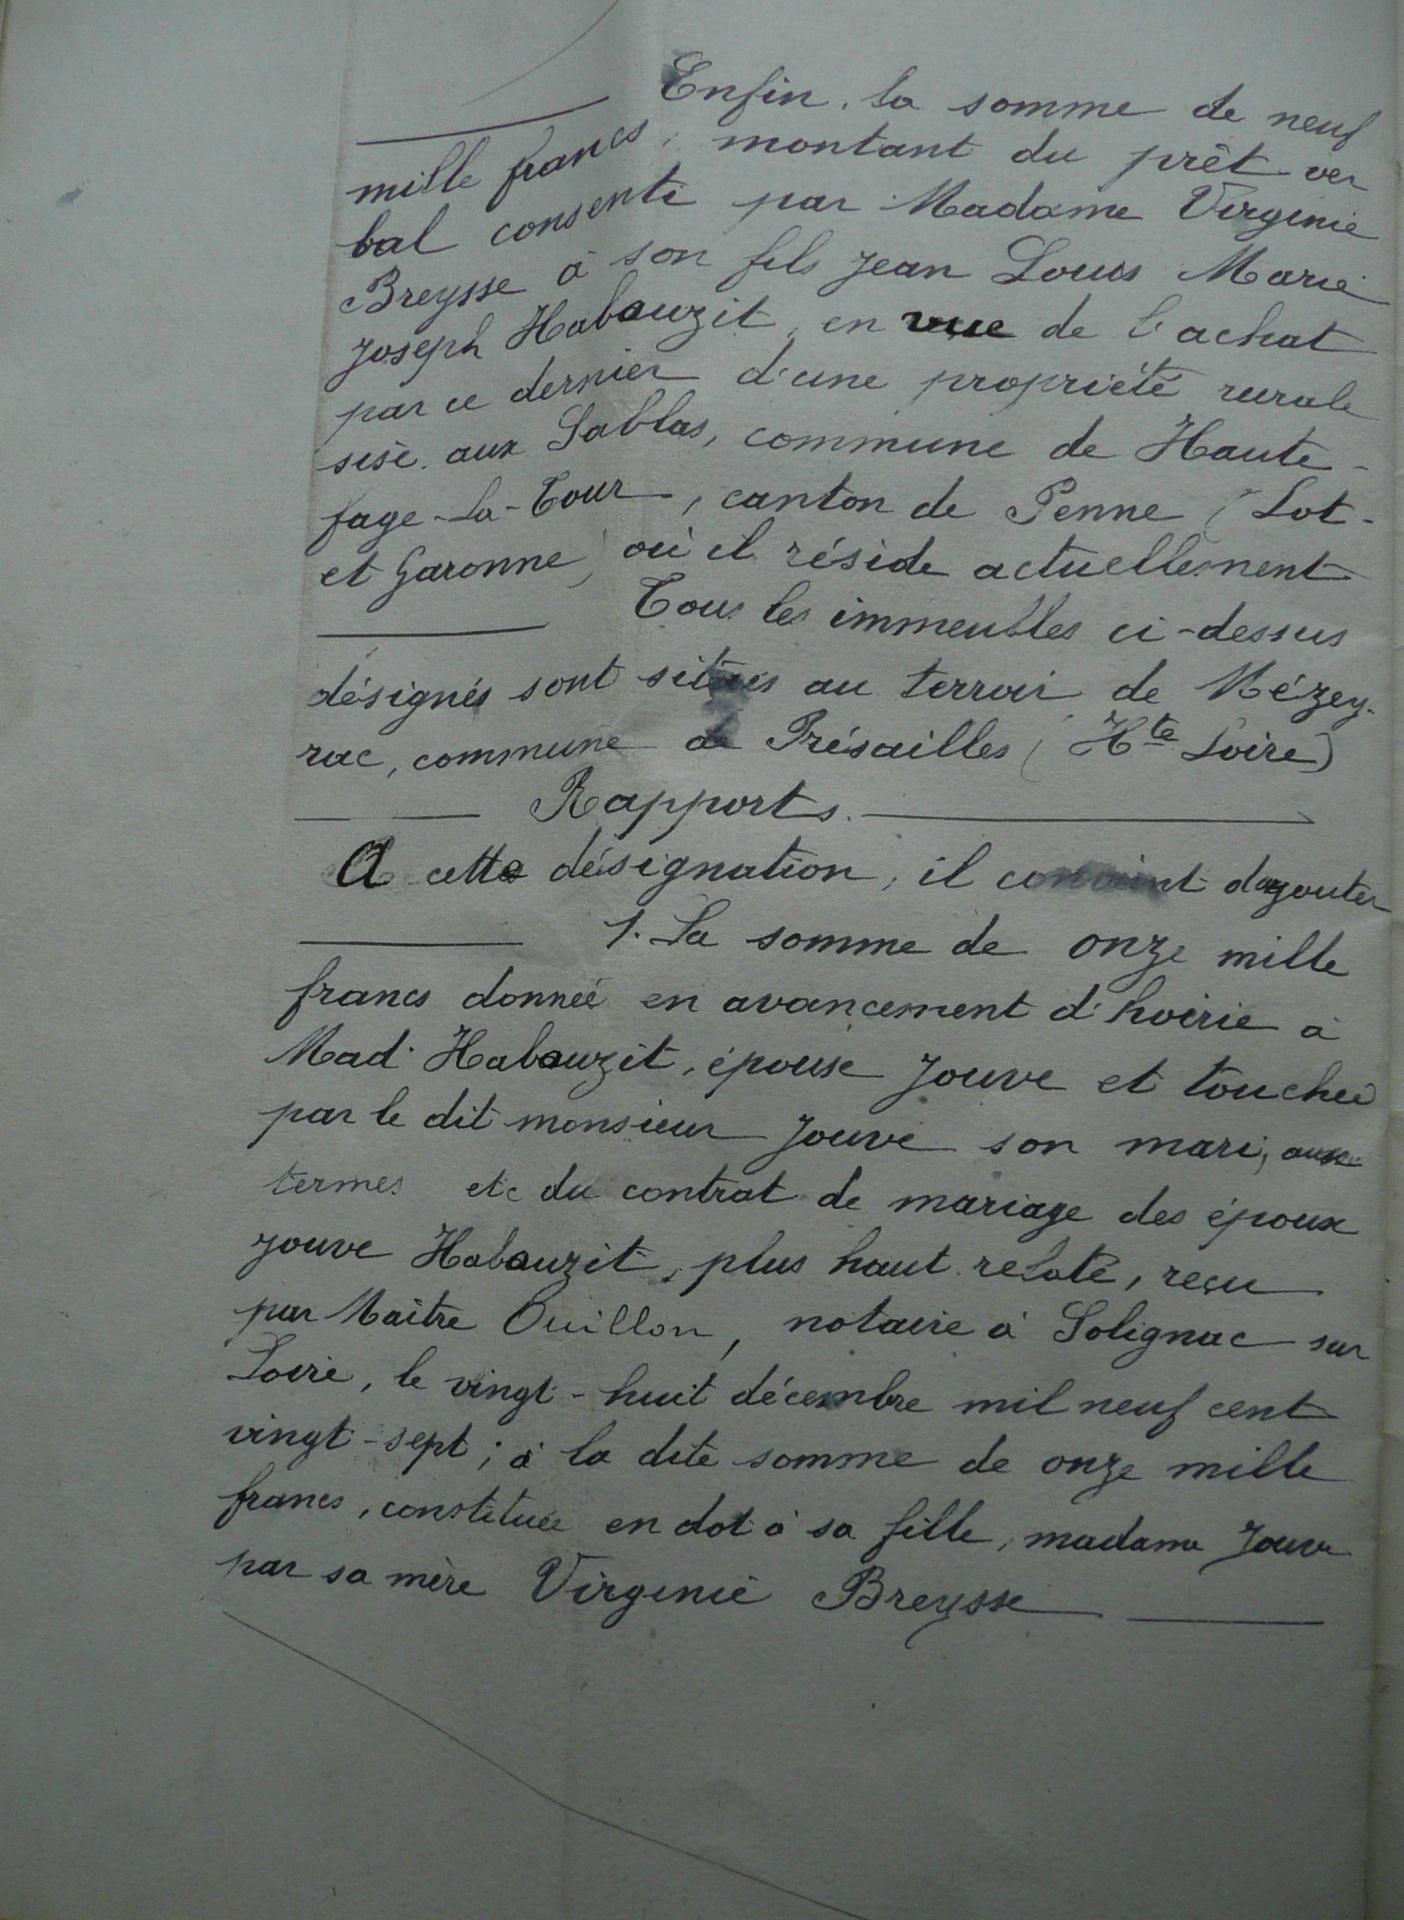 Enfin, la somme de neuf
mille francs, montant du prêt ver
bal consenti par Madame Virginie
Breysse à son fils Jean Louis Marie
Joseph Habauzit, en vue de l'achat
par ce dernier d'une propriété rurale
sise aux Sablas, commune de Haute-
fage-la-Tour, canton de Penne (Lot-
et Garonne) où il réside actuellement
Tous les immeubles ci-dessus
désignés sont situés au terroir de Mézey-
rac, commune de Présailles (Hte Loire)
Rapports.
A cette désignation, il convient d'ajouter
1. La somme de onze mille
francs donnée en avancement d'hoirie à
Mad. Habauzit, épouse Jouve et touchée
par le dit monsieur Jouve son mari, aux
termes etc du contrat de mariage des époux
Jouve Habauzit, plus haut relaté, reçu
par Maître Ouillon, notaire à Solignac sur
Loire, le vingt-huit décembre mil neuf cent
vingt-sept; à la dite somme de onze mille
francs, constituée en dot à sa fille, madame Jouve
par sa mère Virginie Breysse